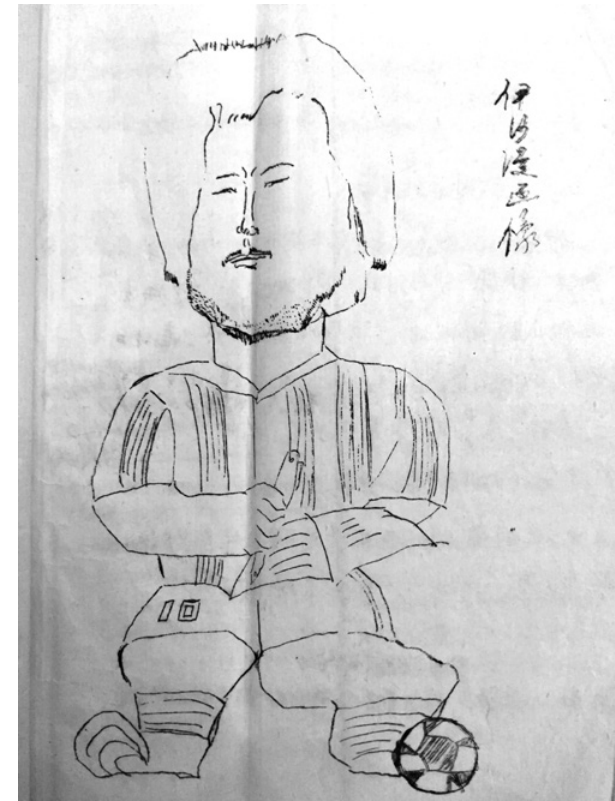 伊沙漫画像
10